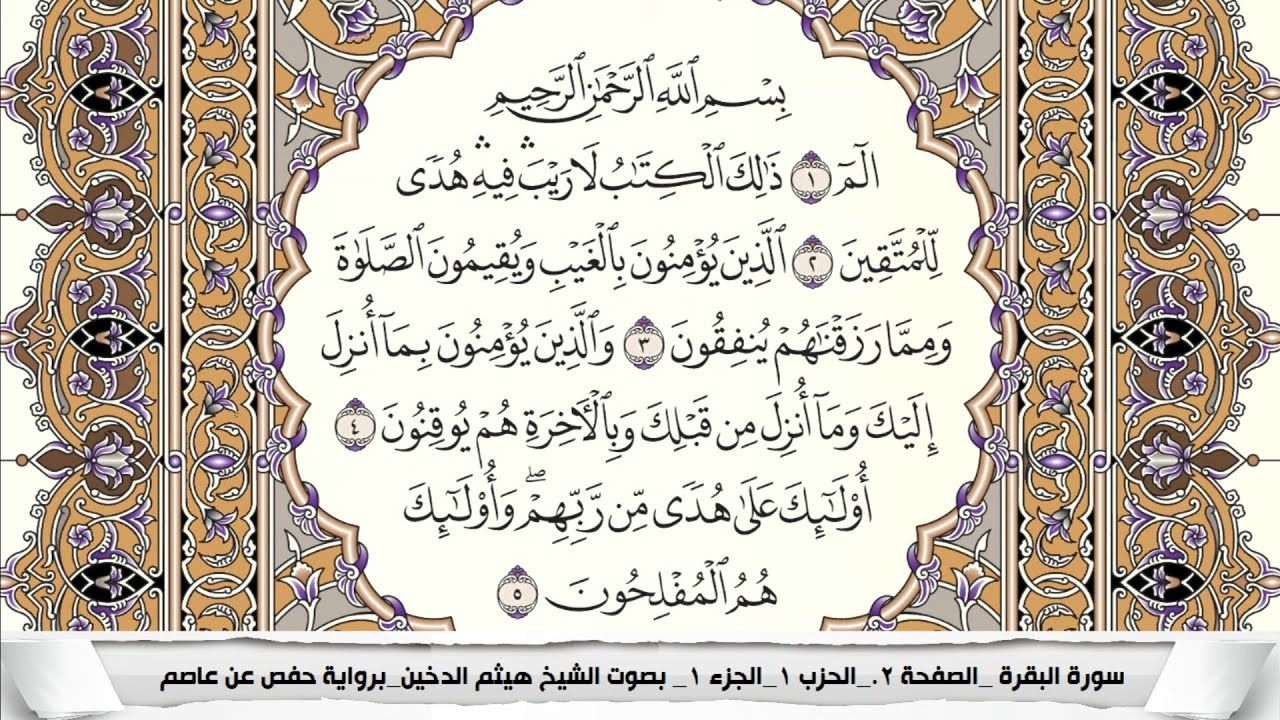 بِسْمِ ٱللَّهِ ٱلرَّحْمَٰنِ ٱلرَّحِيمِ
الٓمٓ ١ ذَٰلِكَ ٱلْكِتَٰبُ لَا رَيْبَ ۛ فِيهِ ۛ هُدًى
لِّلْمُتَّقِينَ ٢ ٱلَّذِينَ يُؤْمِنُونَ بِٱلْغَيْبِ وَيُقِيمُونَ ٱلصَّلَوٰةَ
وَمِمَّا رَزَقْنَٰهُمْ يُنفِقُونَ ٣ وَٱلَّذِينَ يُؤْمِنُونَ بِمَآ أُنزِلَ
إِلَيْكَ وَمَآ أُنزِلَ مِن قَبْلِكَ وَبِٱلْأَخِرَةِ هُمْ يُوقِنُونَ ٤
أُو۟لَٰٓئِكَ عَلَىٰ هُدًى مِّن رَّبِّهِمْ ۖ وَأُو۟لَٰٓئِكَ
هُمُ ٱلْمُفْلِحُونَ ٥
سورة البقرة _الصفحة ٢._الحزب ١_الجزء ١_ بصوت الشيخ هيثم الدخين_برواية حفص عن عاصم